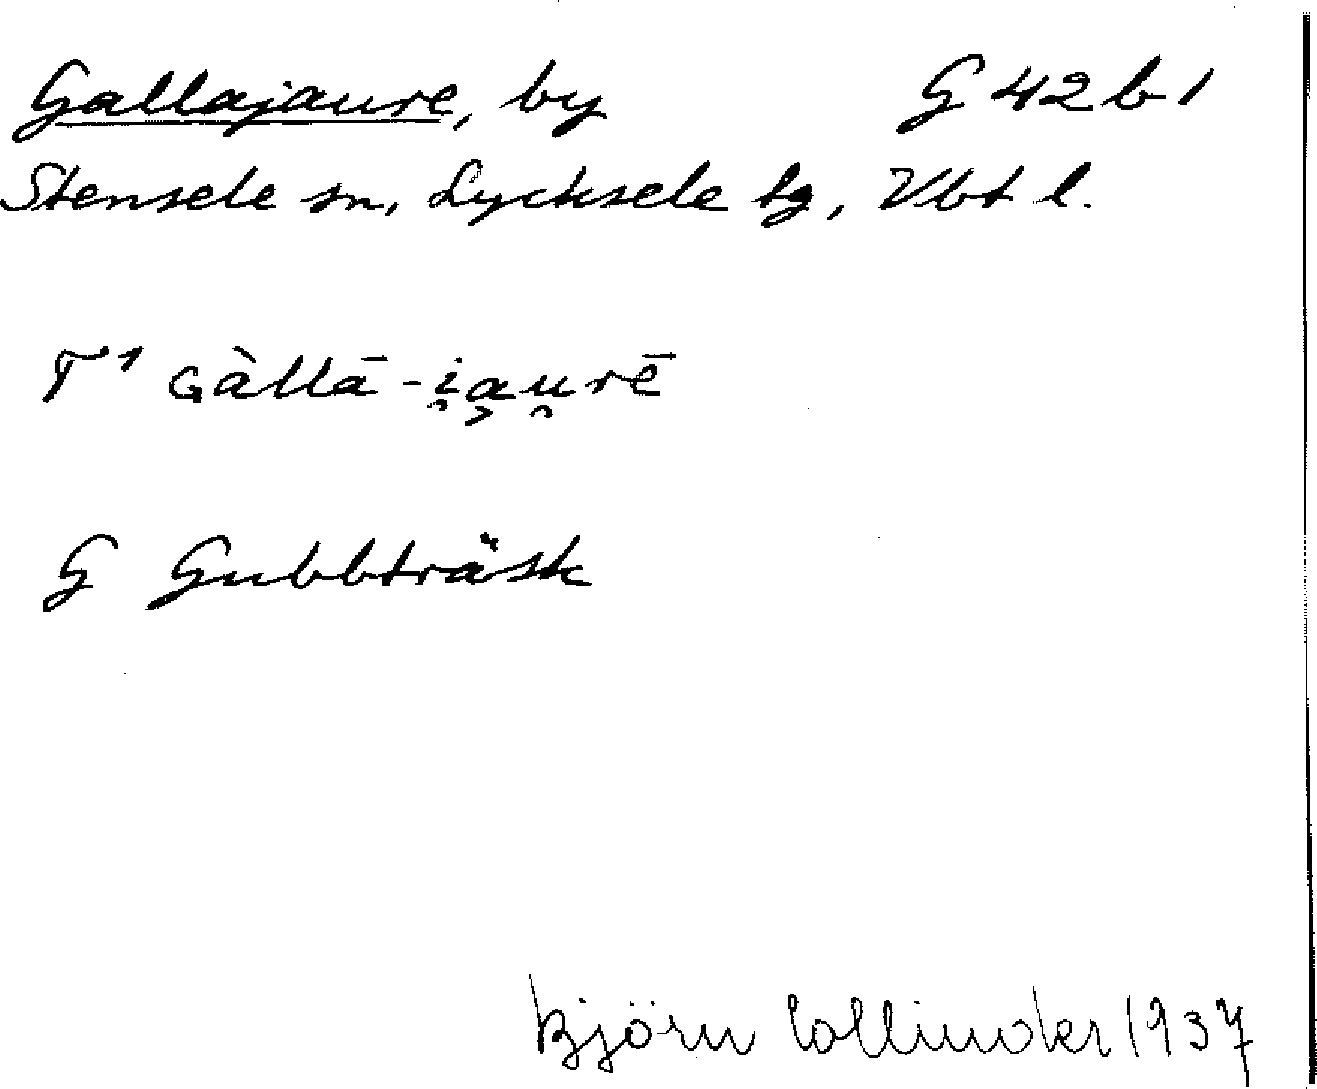 Gallajaure, by G 42 b 1
Stensele sn, Lycksele tg, Vbt l.
T¹ ɢàllā-i̯a̬u̯rē
G Gubbträsk
Björn Collinder 1937